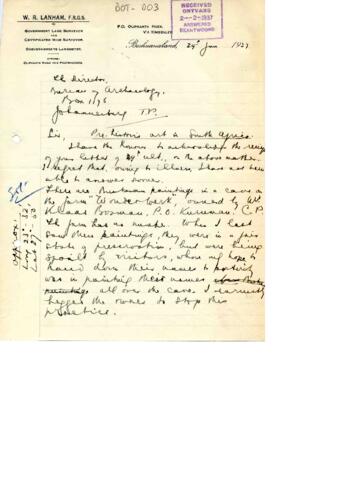 DOT-003
W. R. LANHAM, F.R.G.S.
GOVERNMENT LAND SURVEYOR
P.O. OLIPHANTS HOEK
VIA KIMBERLEY
RECEIVED
ONTVANGS
2-2-1937
ANSWERED
BEANTWOORD
Bechuanaland, 29th Jan 1937
The Director,
Bureau of Archaeology,
Box 1176
Johannesburg T.P.
Sir, Pre-historic art in South Africa.
I have the honour to acknowledge the receipt
of your letter of ult. on the above matter.
I regret that, owing to illness, I have not been
able to answer sooner.
There are Bushman paintings in a cave on
the farm "Wonderwerk", owned by Mr.
Klaas Bosman, P.O. Kuruman, C.P.
The farm has no number. When I last
saw these paintings, they were in a fair
state of preservation, but were being
spoilt by visitors, whose only hope to
hand down their names to posterity
was in painting their names
all over the cave. I earnestly
begged the owner to stop this
practice.
approx:
Long 23° 32'
Lat 27°